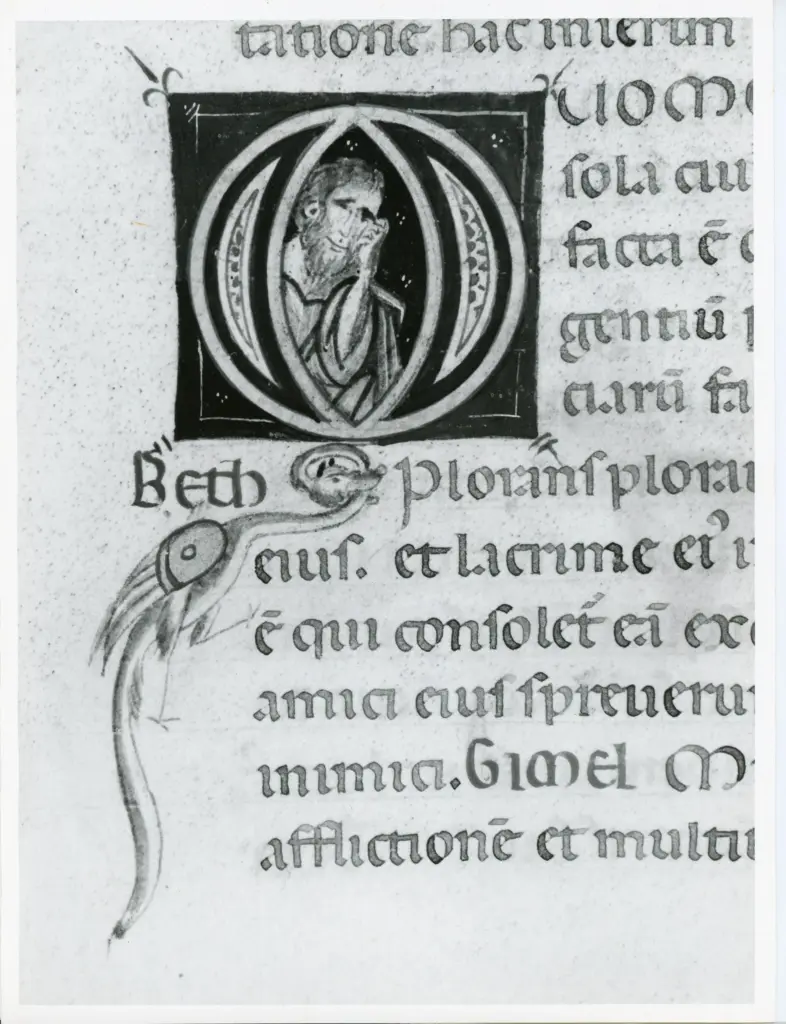 tatione hac interim
QUOMO
sola ciui
facta ē
gentiū
ciarū fa
Beth Plorans plorau
eius. et lacrime ei᾽ i
ē qui consolet́ eā ex
amici eius spreueru
inimici. GIMEL M
afflictionē et multi